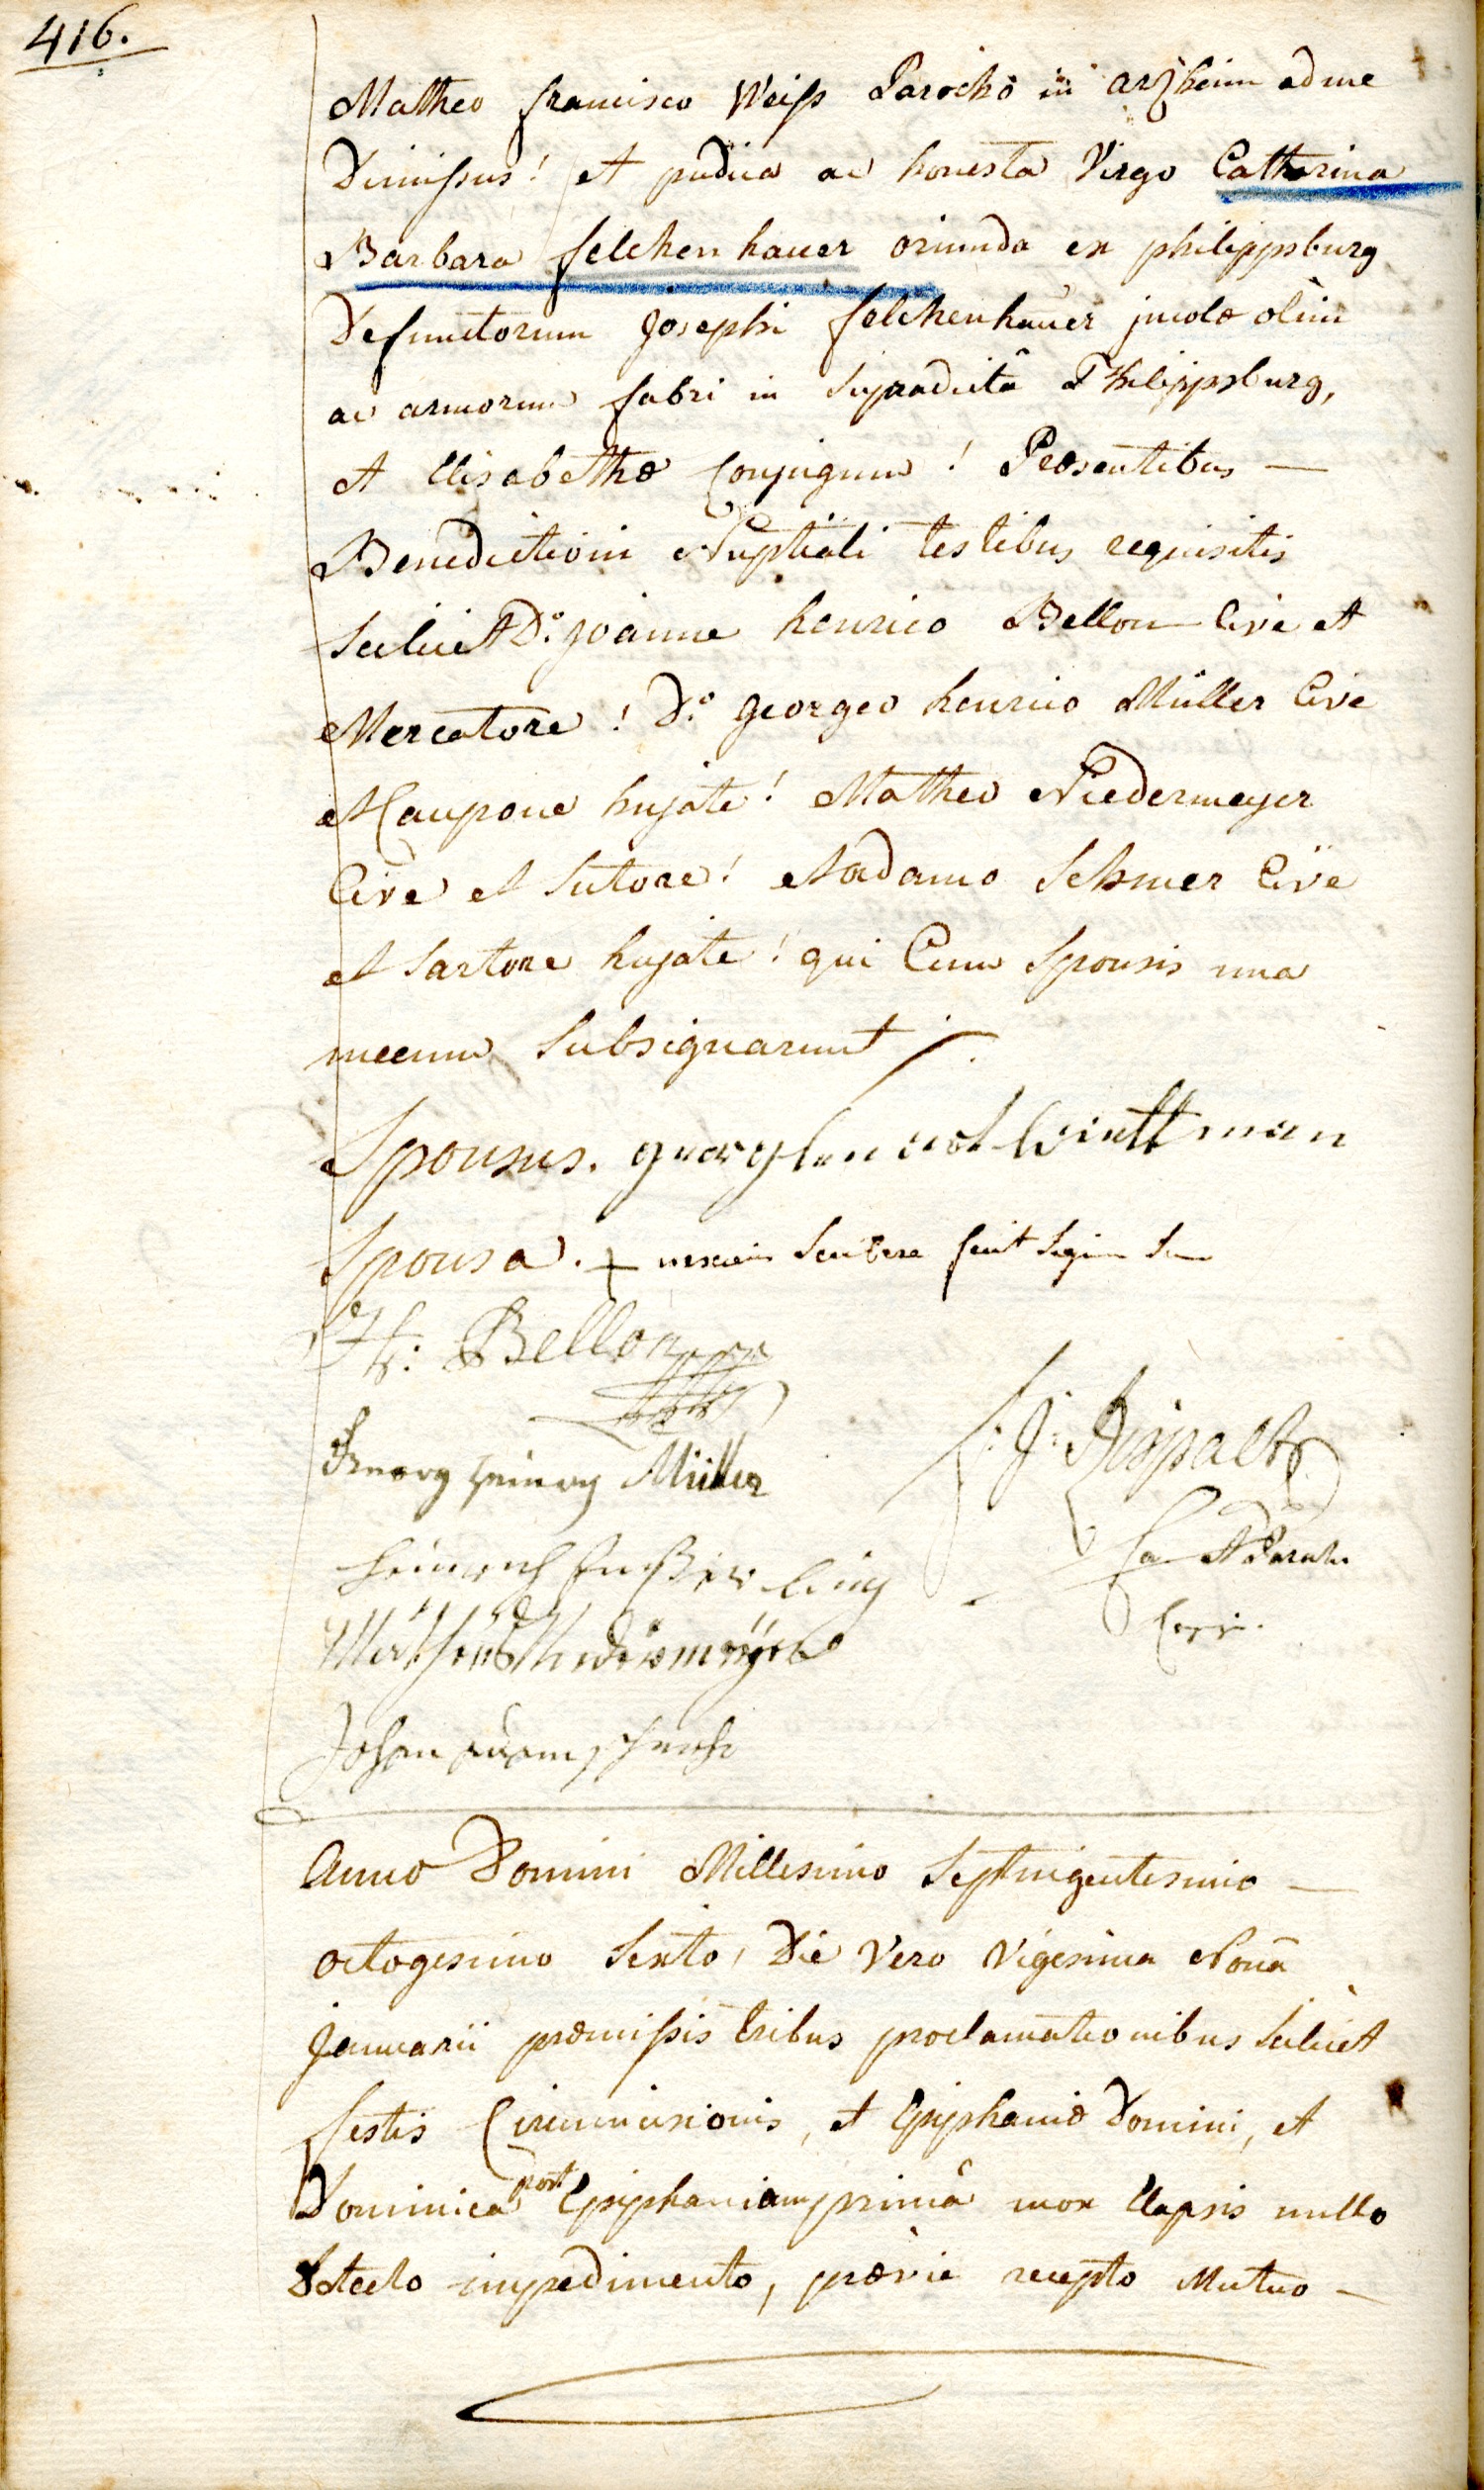 416.
Matheo francisco Weiss Parocho in arzheim ad me
Dimissus! et pudica ac honesta Virgo Catharina
Barbara felchenhauer oriunda ex philippsburg
Defunctorum Josephi felchenhauer incolæ olim
ac armorum fabri in supradictâ Philippsburg,
et Elisabethæ Conjugum! Præsentibus —
Benedictioni Nuptiali testibus requisitis
scilicet D.º joanne henrico Bellon Cive et
Mercatore! D.º georgeo henrico Müller Cive
et Caupone hujate! Matheo Niedermeyer
Cive et Sutore! et adamo Cive
et Sartore hujate! qui Cum Sponsis una
mecum Subsignarunt
Sponsus. Wittman
Sponsa. + nesciens scribere fecit signum suum
H: Bellon
Georg Heinrig Müller
Heinrich
Matheus Niedermeyer
Johan adam
Anno Domini Millesimo Septingentesimo —
octogesimo Sexto, Die Vero Vigesima Nonâ
Januarii præmissis tribus proclamationibus scilicet
festis Circumcisionis, et Epiphaniæ Domini, et
Dominica post Epiphaniam primâ mox Elapsis nullo
Detecto impedimento, prævie recepto Mutuo —